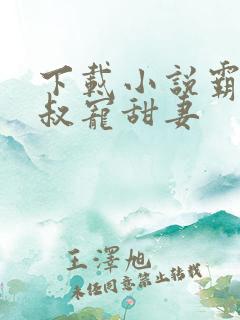 下载小说霸
叔宠甜妻
王澤旭
未任同意禁止转载